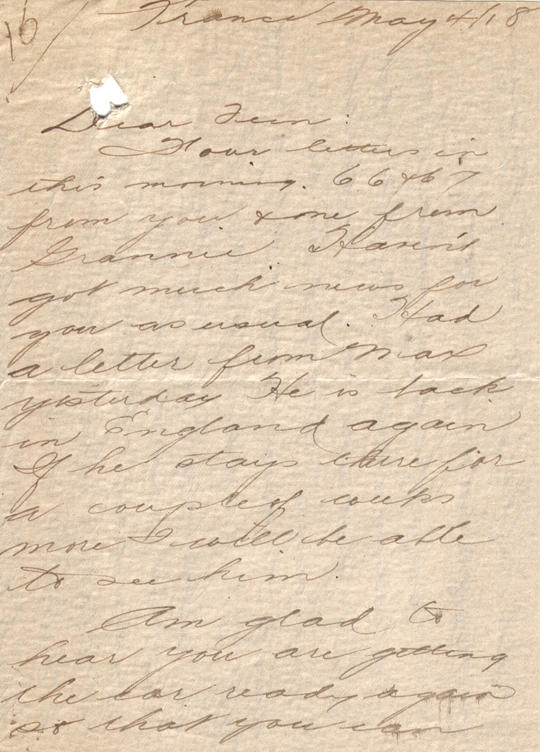 16/
France May 4/18
Dear Fern:
Your letters in
this morning. 66 & 67
from you & one from
Grannie Haven't
got much news for
you as usual. Had
a letter from Max
yesterday He is back
in England again
If he stays there for
a couple of weeks
more I will be able
to see him.
Am glad to
hear you are getting
the car ready again
so that you can